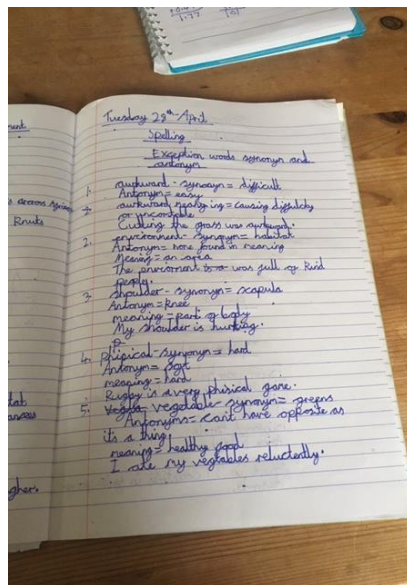 Tuesday 28th April
Spelling
Exception words synonym and
antonym
1. awkward - synonym = difficult
Antonym = easy
awkward meaning = causing difficulty
Cutting the grass was awkward.
2. environment - synonym = habitat
Antonym = none found in meaning
Meaning = an area
The enviroment is a was full of kind
people.
3. shoulder - synonym = scapula
Antonym = knee
meaning = part of body
My shoulder is hurting.
4. phisical - synonym = hard
Antonym = soft
meaning = hard
Rugby is a very phisical game.
5. vegetable - synonym = greens
Antonyms = can't have opposite as
it's a thing
meaning = healthy food
I ate my vegtables reluctently.
ment
s across
Knuts
tab
gher.